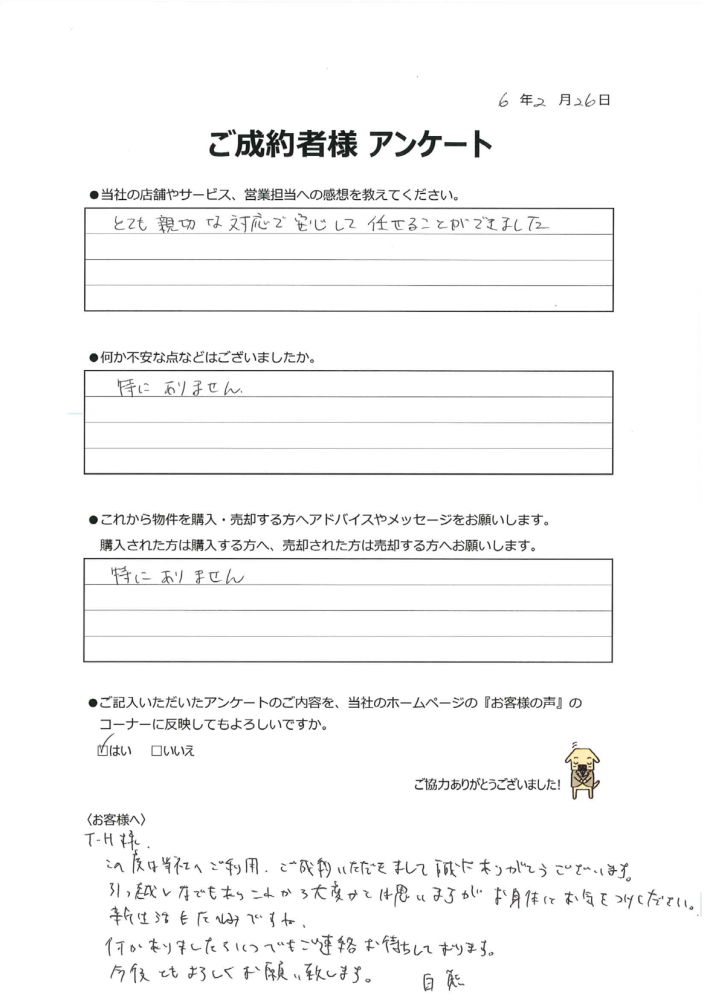 6年2月26日
ご成約者様 アンケート
●当社の店舗やサービス、営業担当への感想を教えてください。
とても親切な対応で安心して任せることができました
●何か不安な点などはございましたか。
特にありません.
●これから物件を購入・売却する方へアドバイスやメッセージをお願いします。
購入された方は購入する方へ、売却された方は売却する方へお願いします。
特にありません
●ご記入いただいたアンケートのご内容を、当社のホームページの『お客様の声』の
コーナーに反映してもよろしいですか。
☑はい □いいえ
ご協力ありがとうございました!
〈お客様へ〉
T-H様.
この度は当社へご利用.ご成約いただきまして誠にありがとうございます。
引っ越しなどもありこれから大変かとは思いますがお身体にお気をつけください。
新生活もたのしみですね.
何かありましたらいつでもご連絡お待ちしております。
今後ともよろしくお願い致します。